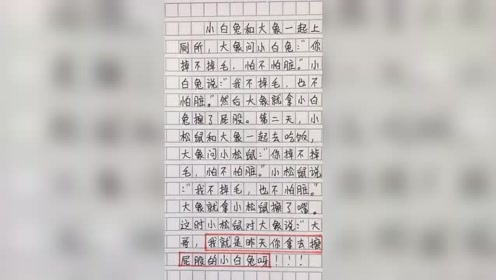 小白兔和大象一起上
厕所，大象问小白兔："你
掉不掉毛，怕不怕脏。"小
白兔说："我不掉毛，也不
怕脏。"然后大象就拿小白
兔擦了屁股。第二天，小
松鼠和大象一起去吃饭，
大象问小松鼠："你掉不掉
毛，怕不怕脏。"小松鼠说
："我不掉毛，也不怕脏。"
大象就拿小松鼠擦了嘴。
这时小松鼠对大象说："大
哥，我就是昨天你拿去擦
屁股的小白兔呀！！！